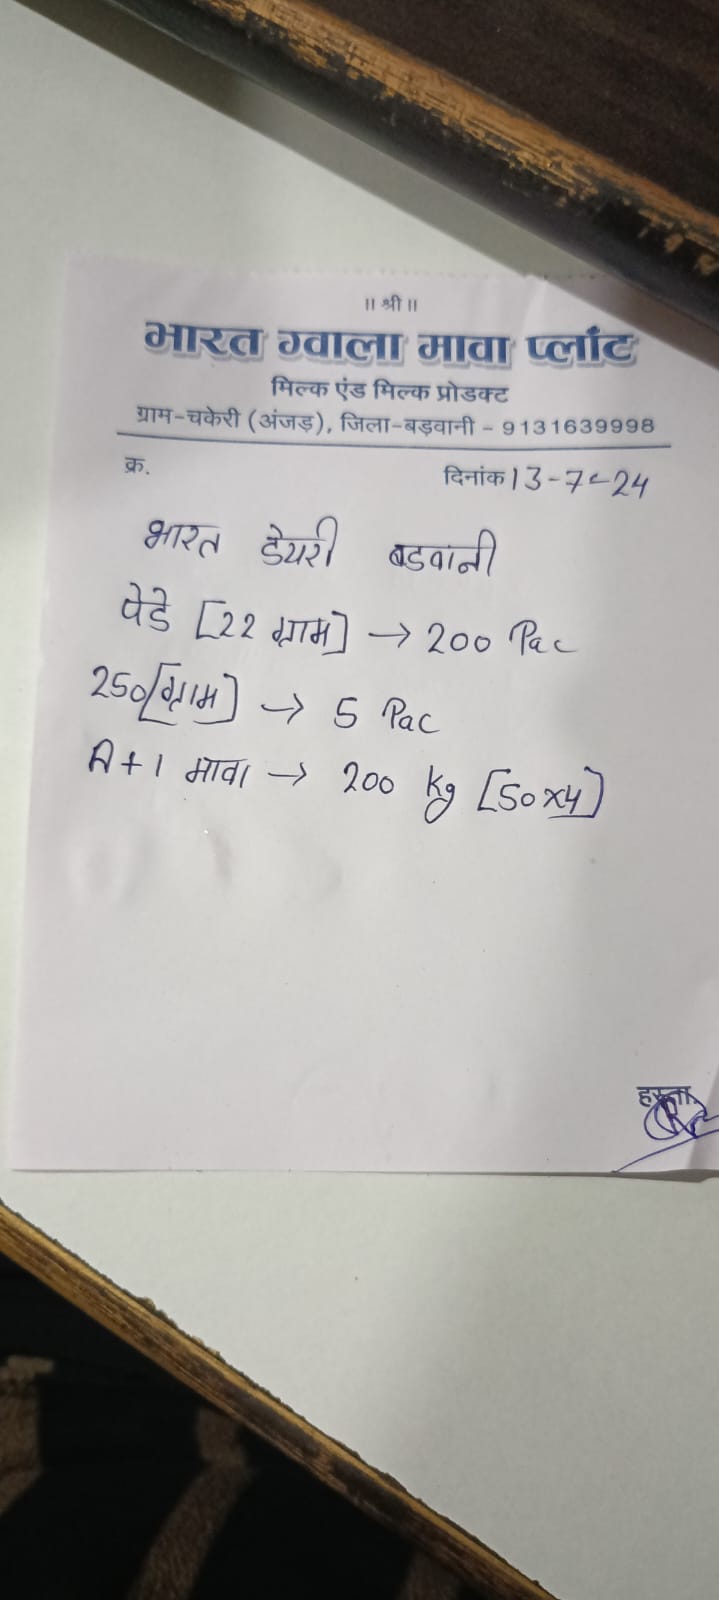 ॥ श्री ॥
भारत ग्वाला मावा प्लांट
मिल्क एंड मिल्क प्रोडक्ट
ग्राम-चकेरी (अंजड़), जिला-बड़वानी - 9131639998
क्र. दिनांक 13-7-24
भारत डेयरी बडवानी
पेडे [22 ग्राम] → 200 Pac
250 [ग्राम] → 5 Pac
A+1 मावा → 200 kg [50x4]
हस्ता.